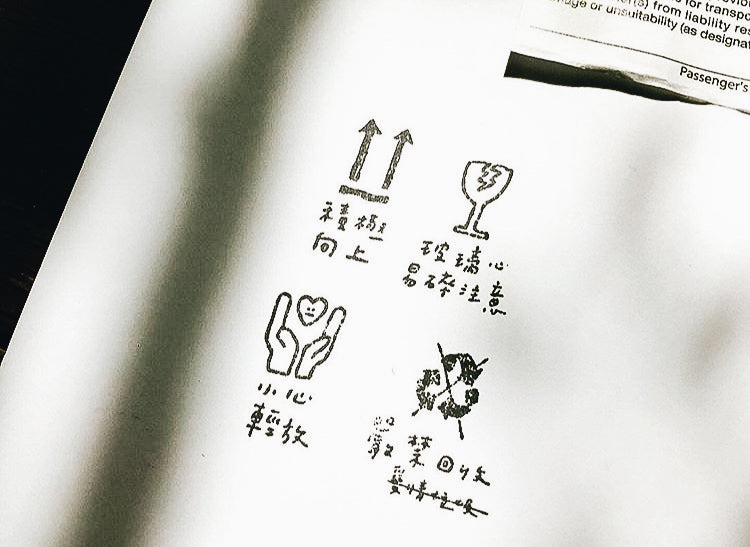 for transpo
from liability res
or unsuitability (as designat
Passenger's
積極
向上
玻璃心
易碎注意
小心
輕放
禁回收
愛情垃圾